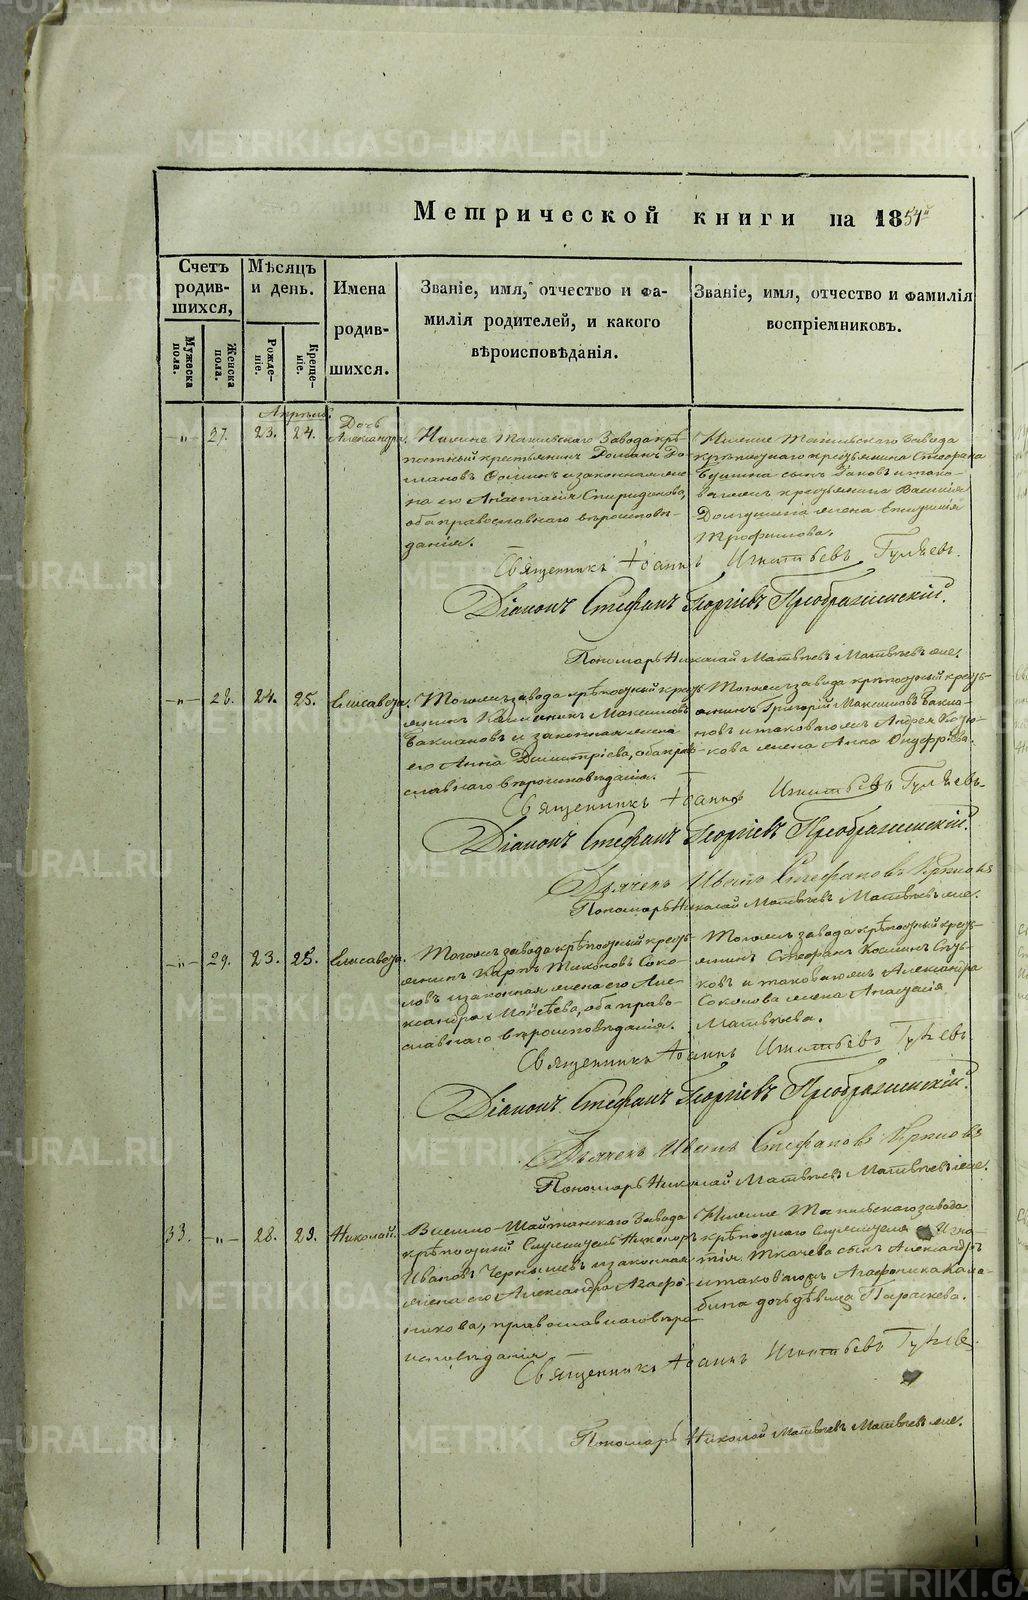 Метрической книги на 1854й
Счетъ родив-шихся,
Мѣсяцъ и день.
Имена родив-шихся.
Званіе, имя, отчество и фа-
милія родителей, и какого
вѣроисповѣданія.
Званіе, имя, отчество и фамилія
воспріемниковъ.
Мужеска пола.
Женска пола.
Рожде-ніе.
Креще-ніе.
Апрѣль.
—„— 27. 23. 24. Дочь Александра,
Нижне Тагильскаго Завода крѣ-
постный крестьянинъ Романъ Ро-
мановъ и законная же-
на его Анастасія Спиридонова,
оба православнаго вѣроисповѣ-
данія.
Нижне Тагильскаго Завода
крѣпостнаго крестьянина Стефана
сынъ Іаковъ и тако-
ваго жъ крестьянина Василія
жена
Трофимова.
Священникъ Іоаннъ Игнатьевъ Гуляевъ.
Діаконъ Стефанъ Георгіевъ Преображенскій.
Пономарь Николай Матвѣевъ Матвѣевъ же.
—„— 28. 24. 25. Елисавета.
Тогожъ завода крѣпостный кресть-
янинъ Максимовъ
и законная жена
его Анна Димитріева, оба прав-
славнаго вѣроисповѣданія.
Тогожъ завода крѣпостный кресть-
янинъ Григорій Максимовъ
и таковаго жъ Андрея
жена Анна Онуфріева.
Священникъ Іоаннъ Игнатьевъ Гуляевъ.
Діаконъ Стефанъ Георгіевъ Преображенскій.
Дьячекъ Иванъ Стефановъ
Пономарь Николай Матвѣевъ Матвѣевъ же.
—„— 29. 23. 25. Елисавета.
Тогожъ завода крѣпостный кресть-
янинъ Карпъ Тихоновъ Соко-
ловъ и законная жена его Але-
ксандра Моисѣева, оба право-
славнаго вѣроисповѣданія.
Тогожъ завода крѣпостный кресть-
янинъ Стефанъ Косминъ
и таковаго жъ Александра
Соколова жена Анастасія
Матвѣева.
Священникъ Іоаннъ Игнатьевъ Гуляевъ.
Діаконъ Стефанъ Георгіевъ Преображенскій.
Дьячекъ Иванъ Стефановъ
Пономарь Николай Матвѣевъ Матвѣевъ же.
33. —„— 28. 29. Николай.
Висимо-Шайтанскаго Завода
крѣпостный Служитель Никаноръ
Ивановъ Чернышевъ и законная
жена его Александра Агафо-
никова, православнаго вѣро-
исповѣданія.
Нижне Тагильскаго завода
крѣпостнаго Служителя Игна-
тія Ткачева сынъ Александръ
и таковаго жъ Агафоника Кала-
бина дочь дѣвица Параскева.
Священникъ Іоаннъ Игнатьевъ Гуляевъ
Пономарь Николай Матвѣевъ Матвѣевъ же.
METRIKI.GASO-URAL.RU